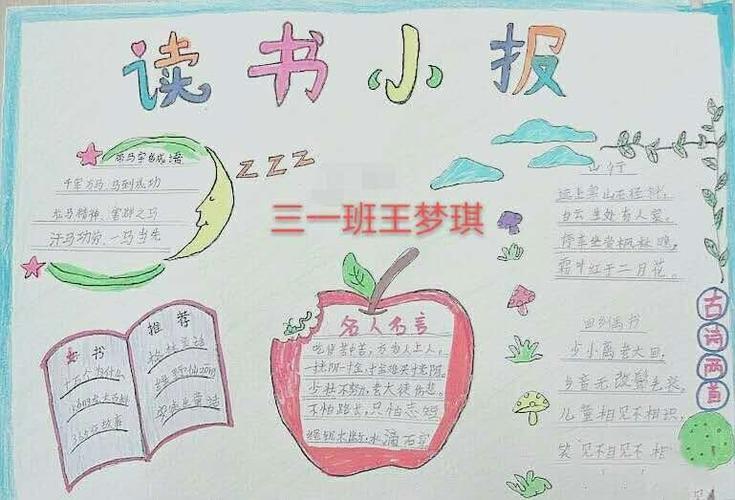 读书小报
带马字的成语
千军万马、马到成功
龙马精神、害群之马
汗马功劳、一马当先
ZZZ
三一班王梦琪
好书
十万个为什么
推荐
格林童话
名人名言
吃得苦中苦，方为人上人。
寸金难买寸光阴。
少壮不努力，老大徒伤悲。
不怕路长，只怕志短
绳锯木断，水滴石穿
山行
远上寒山石径斜，
白云生处有人家。
停车坐爱枫林晚，
霜叶红于二月花。
古诗两首
少小离老大回，
乡音无改鬓毛衰，
儿童相见不相识，
笑